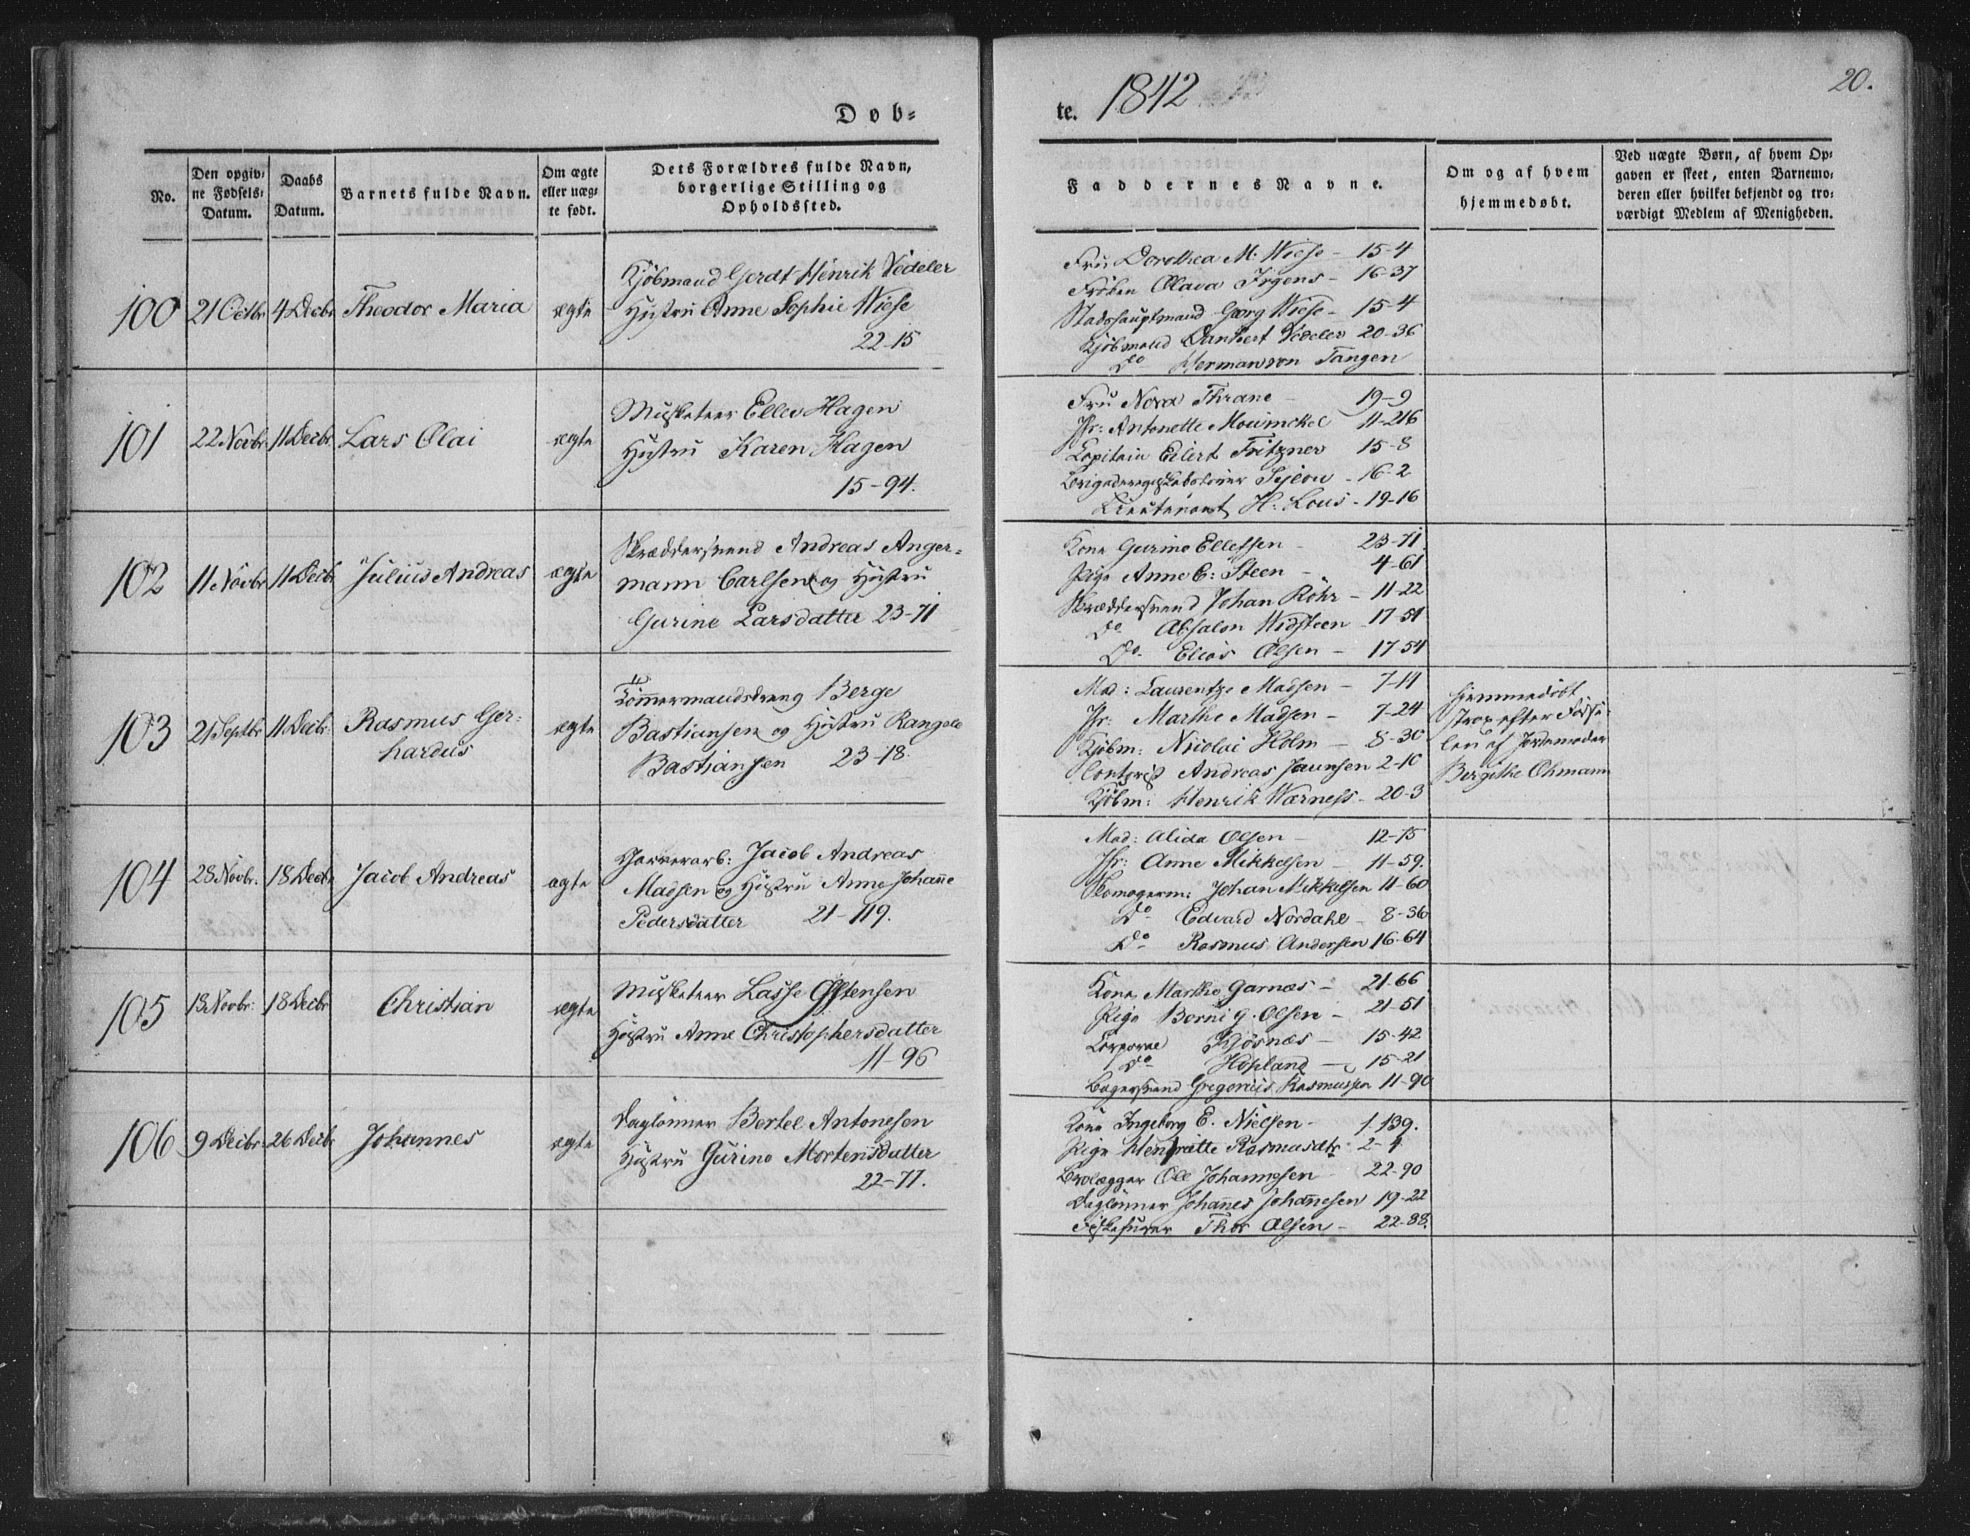 Døb=
te. 1842
20.
No.
Den opgiv=
ne Fødsels=
Datum.
Daabs
Datum.
Barnets fulde Navn.
Om ægte
eller uæg=
te født.
Dets Forældres fulde Navn,
borgerlige Stilling og
Opholdssted.
Faddernes Navne.
Om og af hvem
hjemmedøbt.
Ved uægte Børn, af hvem Op=
gaven er skeet, enten Barnemo=
deren eller hvilket bekjendt og tro=
værdigt Medlem af Menigheden.
100 21 Octbr 4 Decbr Theodor Maria ægte
Kjøbmand Gerdt Hinrik Vedeler
Hustru Anne Sophie Wiese
22-15
Fru Dorothea M. Wiese - 15-4
Frøken Olava Irgens - 16-37
Stadshauptmand Georg Wiese - 15-4
Kjøbmand Dankert Vedeler 20-36
Do Herman von Tangen
101 22 Novbr 11 Decbr Lars Olai ægte
Musketeer Ellev Hagen
Hustru Karen Hagen
15-94.
Fru Nora Thrane - 19-9
Jfr: Antonette Mouinckel 11-216
Capitain Eilert Fritzner 15-8
16-2
Lieutenant H: Lous - 19-16
102 11 Novbr 11 Decbr Julius Andreas ægte
Skræddersvend Andreas Anger=
mann Carlsen og Hustru
Gurine Larsdatter 23-71
Kone Gurine Ellefsen - 23-71.
Pige Anne E: Steen - 4-61
Skræddersvend Johan Röhr - 11-22
Do Absalon Widsteen 17-51
Do. Elias Olsen - 17-54
103 21 Septbr 11 Decbr Rasmus Ger=
hardus
ægte
Tømmermandsdreng Berge
Bastiansen og Hustru Rangele
Bastiansen 23-18.
Mad: Laurentze Madsen - 7-11
Jfr: Marthe Madsen - 7-24
Kjøbm: Nicolai Holm - 8-30
Contorist Andreas Jaunsen 2-10
Kjøbm: Henrik Wærness - 20-3
Hjemmedøbt
strax efter Fødse=
len af Jordemoder
Bergithe Ohmann
104 28 Novbr. 18 Decbr Jacob Andreas ægte
Garverarb: Jacob Andreas
Madsen og Hustru Anne Johanne
Pedersdatter 21-119.
Mad: Alida Olsen - 12-15
Jfr: Anne Mikkelsen - 11-59.
Skomagerm: Johan Mikkelsen 11-60
Do Edvard Nordahl - 8-36
Do Rasmus Andersen 16-64
105 13 Novbr. 18 Decbr Christian ægte
Musketeer Lasse Ostensen
Hustru Anne Christophersdatter
11-96
Kone Marthe Garnæs - 21-66
Pige Børni G. Olsen - 21-51
Corporal Kjøsnæs - 15-42
Do Hopland - 15-21
Bagersvend Gregorius Rasmussen 11-90
106 9 Decbr. 26 Decbr Johannes ægte
Dagløner Bertel Antonesen
Hustru Gurine Mortensdatter
22-77.
Kone Ingeborg E. Nielsen - 1.139.
Pige Henriette Rasmusdtr 2-4
Brolægger Ole Johannesen - 22-90
Dagløner Johanes Johannesen 19-22
Thor Olsen - 22-88.